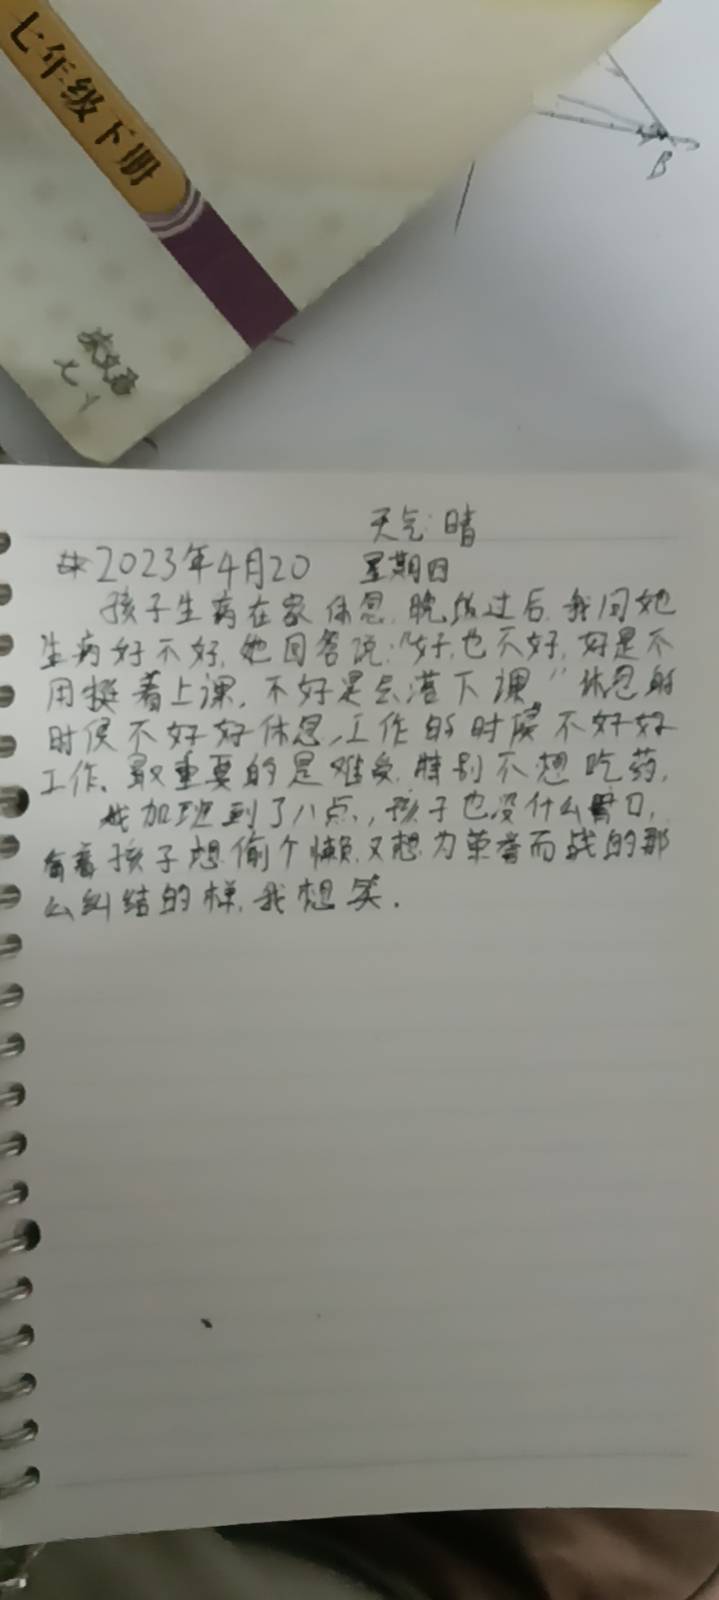 七年级下册
七
B
天气:晴
2023年4月20 星期四
孩子生病在家休息,晚饭过后,我问她
生病好不好,她回答说:"好,也不好,好是不
用挺着上课,不好是去落下课。"休息的
时候不好好休息,工作的时候不好好
工作、最重要的是难受,特别不想吃药,
我加班到了八点,孩子也没什么胃口,
看着孩子想偷个懒又想为荣誉而战的那
么纠结的样,我想笑.